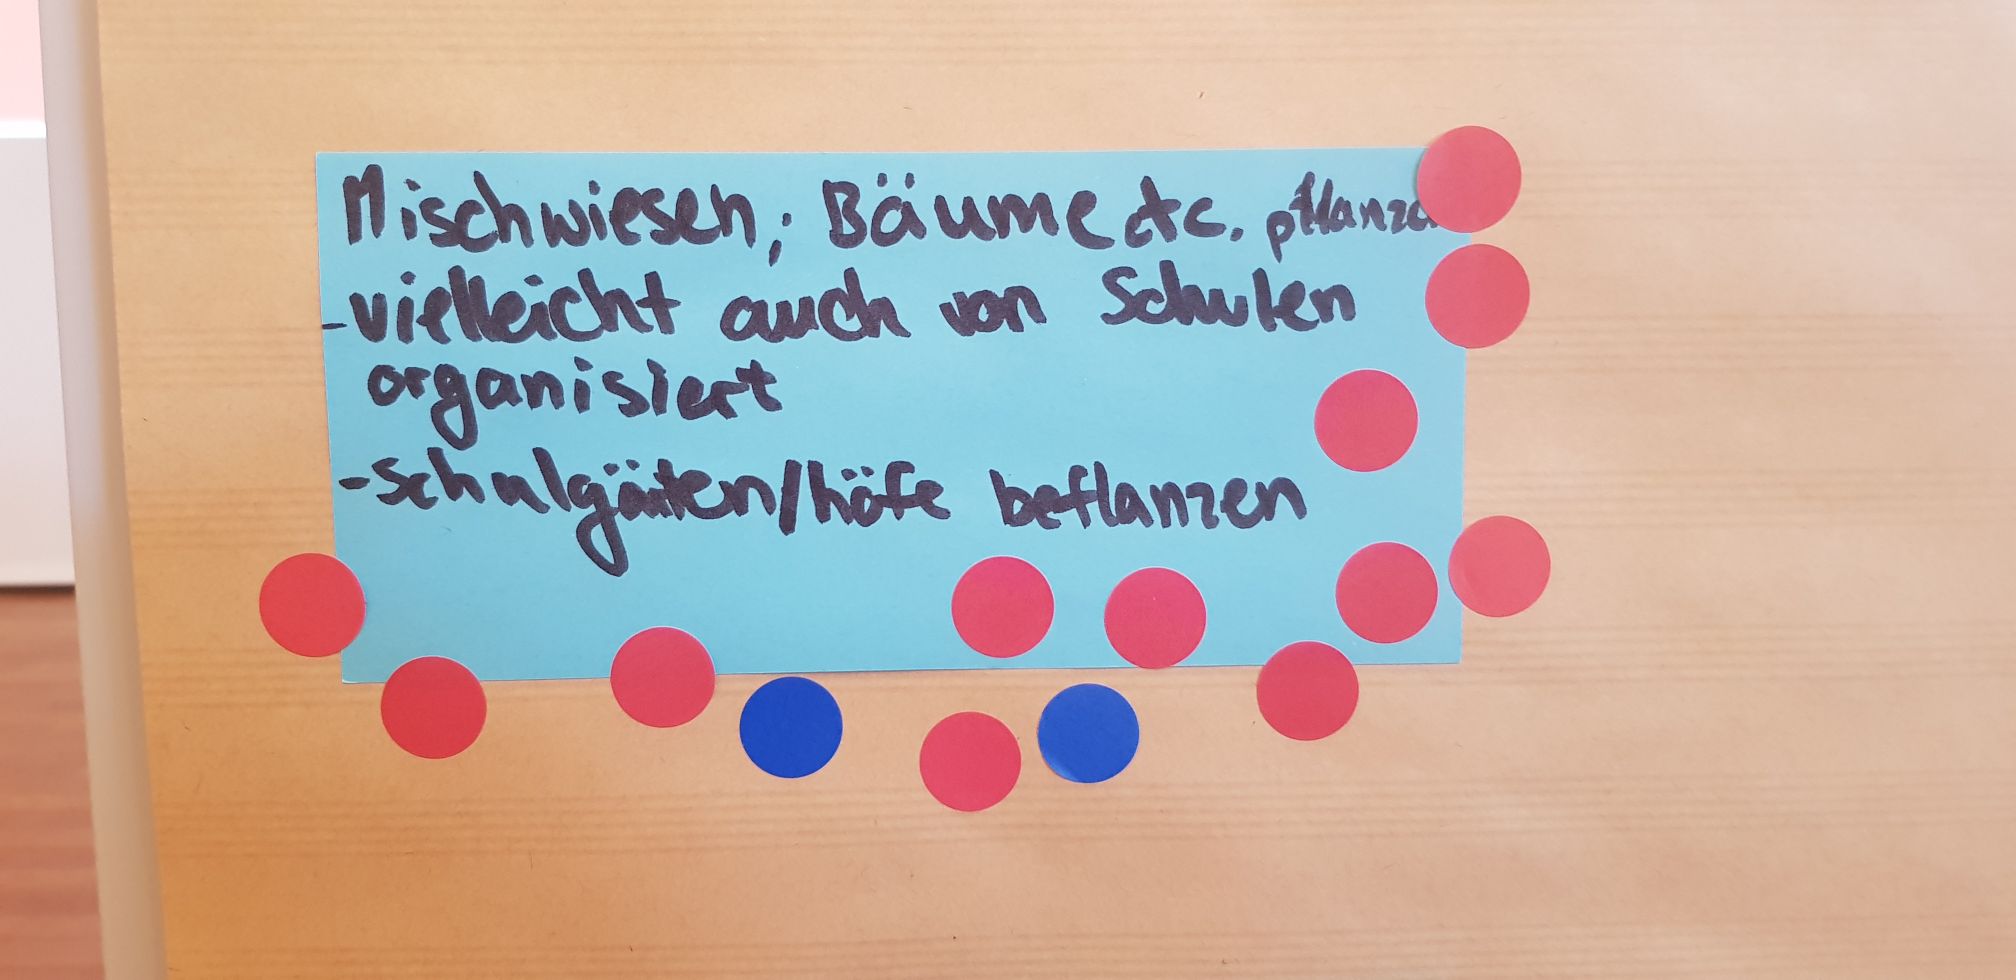 Mischwiesen, Bäume etc. pflanzen
- vielleicht auch von Schulen
organisiert
- Schulgärten/höfe beflanzen